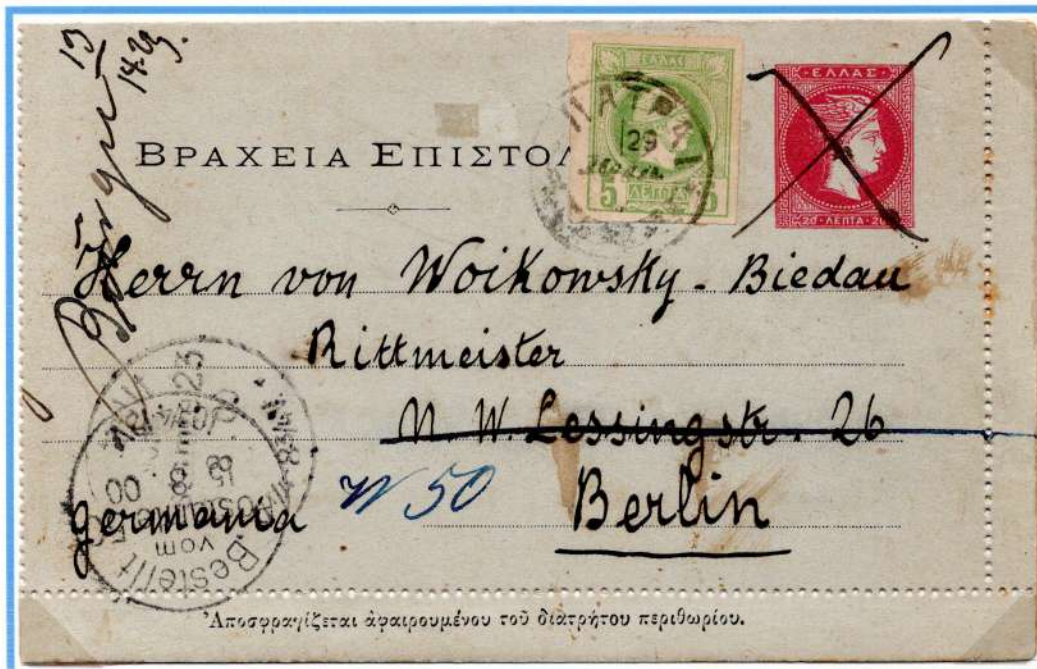 ΕΛΛΑΣ
5 ΛΕΠΤΑ 5
ΠΑΤΡΑΙ
29
ΕΛΛΑΣ
20 · ΛΕΠΤΑ · 20
ΒΡΑΧΕΙΑ ΕΠΙΣΤΟΛ
Herrn von Woikowsky - Biedau
Rittmeister
N. W. Lessingstr. 26
W 50
Germania
Berlin
Bestellt
vom
Postamte
00
Ἀποσφραγίζεται ἀφαιρουμένου τοῦ διατρήτου περιθωρίου.